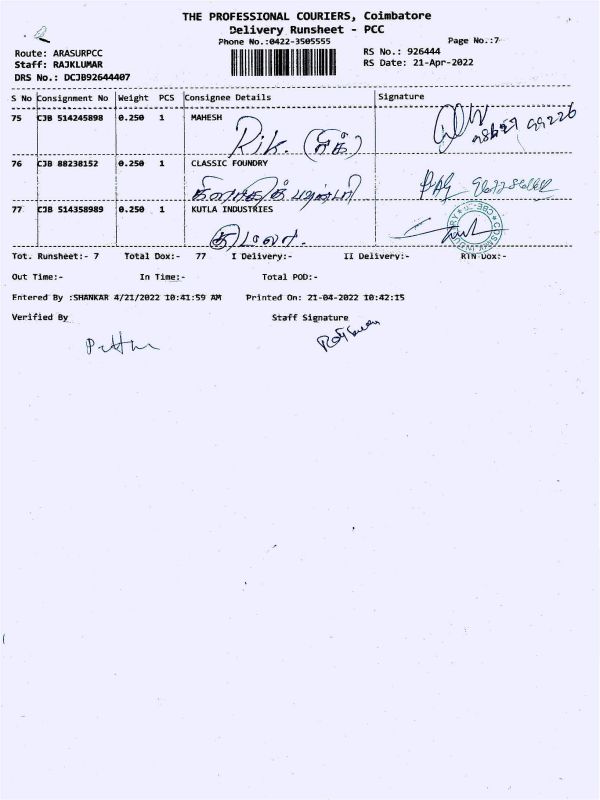 THE PROFESSIONAL COURIERS, Coimbatore
Delivery Runsheet - PCC
Phone No.:0422-3505555
Page No.:7
Route: ARASURPCC
RS No.: 926444
Staff: RAJKLUMAR
RS Date: 21-Apr-2022
DRS No.: DCJB92644407
S No Consignment No Weight PCS Consignee Details Signature
75 CJB 514245898 0.250 1 MAHESH
Rik.
76 CJB 88238152 0.250 1 CLASSIC FOUNDRY
77 CJB 514358989 0.250 1 KUTLA INDUSTRIES
Tot. Runsheet:- 7 Total Dox:- 77 I Delivery:- II Delivery:- RTN Dox:-
Out Time:- In Time:- Total POD:-
Entered By :SHANKAR 4/21/2022 10:41:59 AM Printed On: 21-04-2022 10:42:15
Verified By Staff Signature